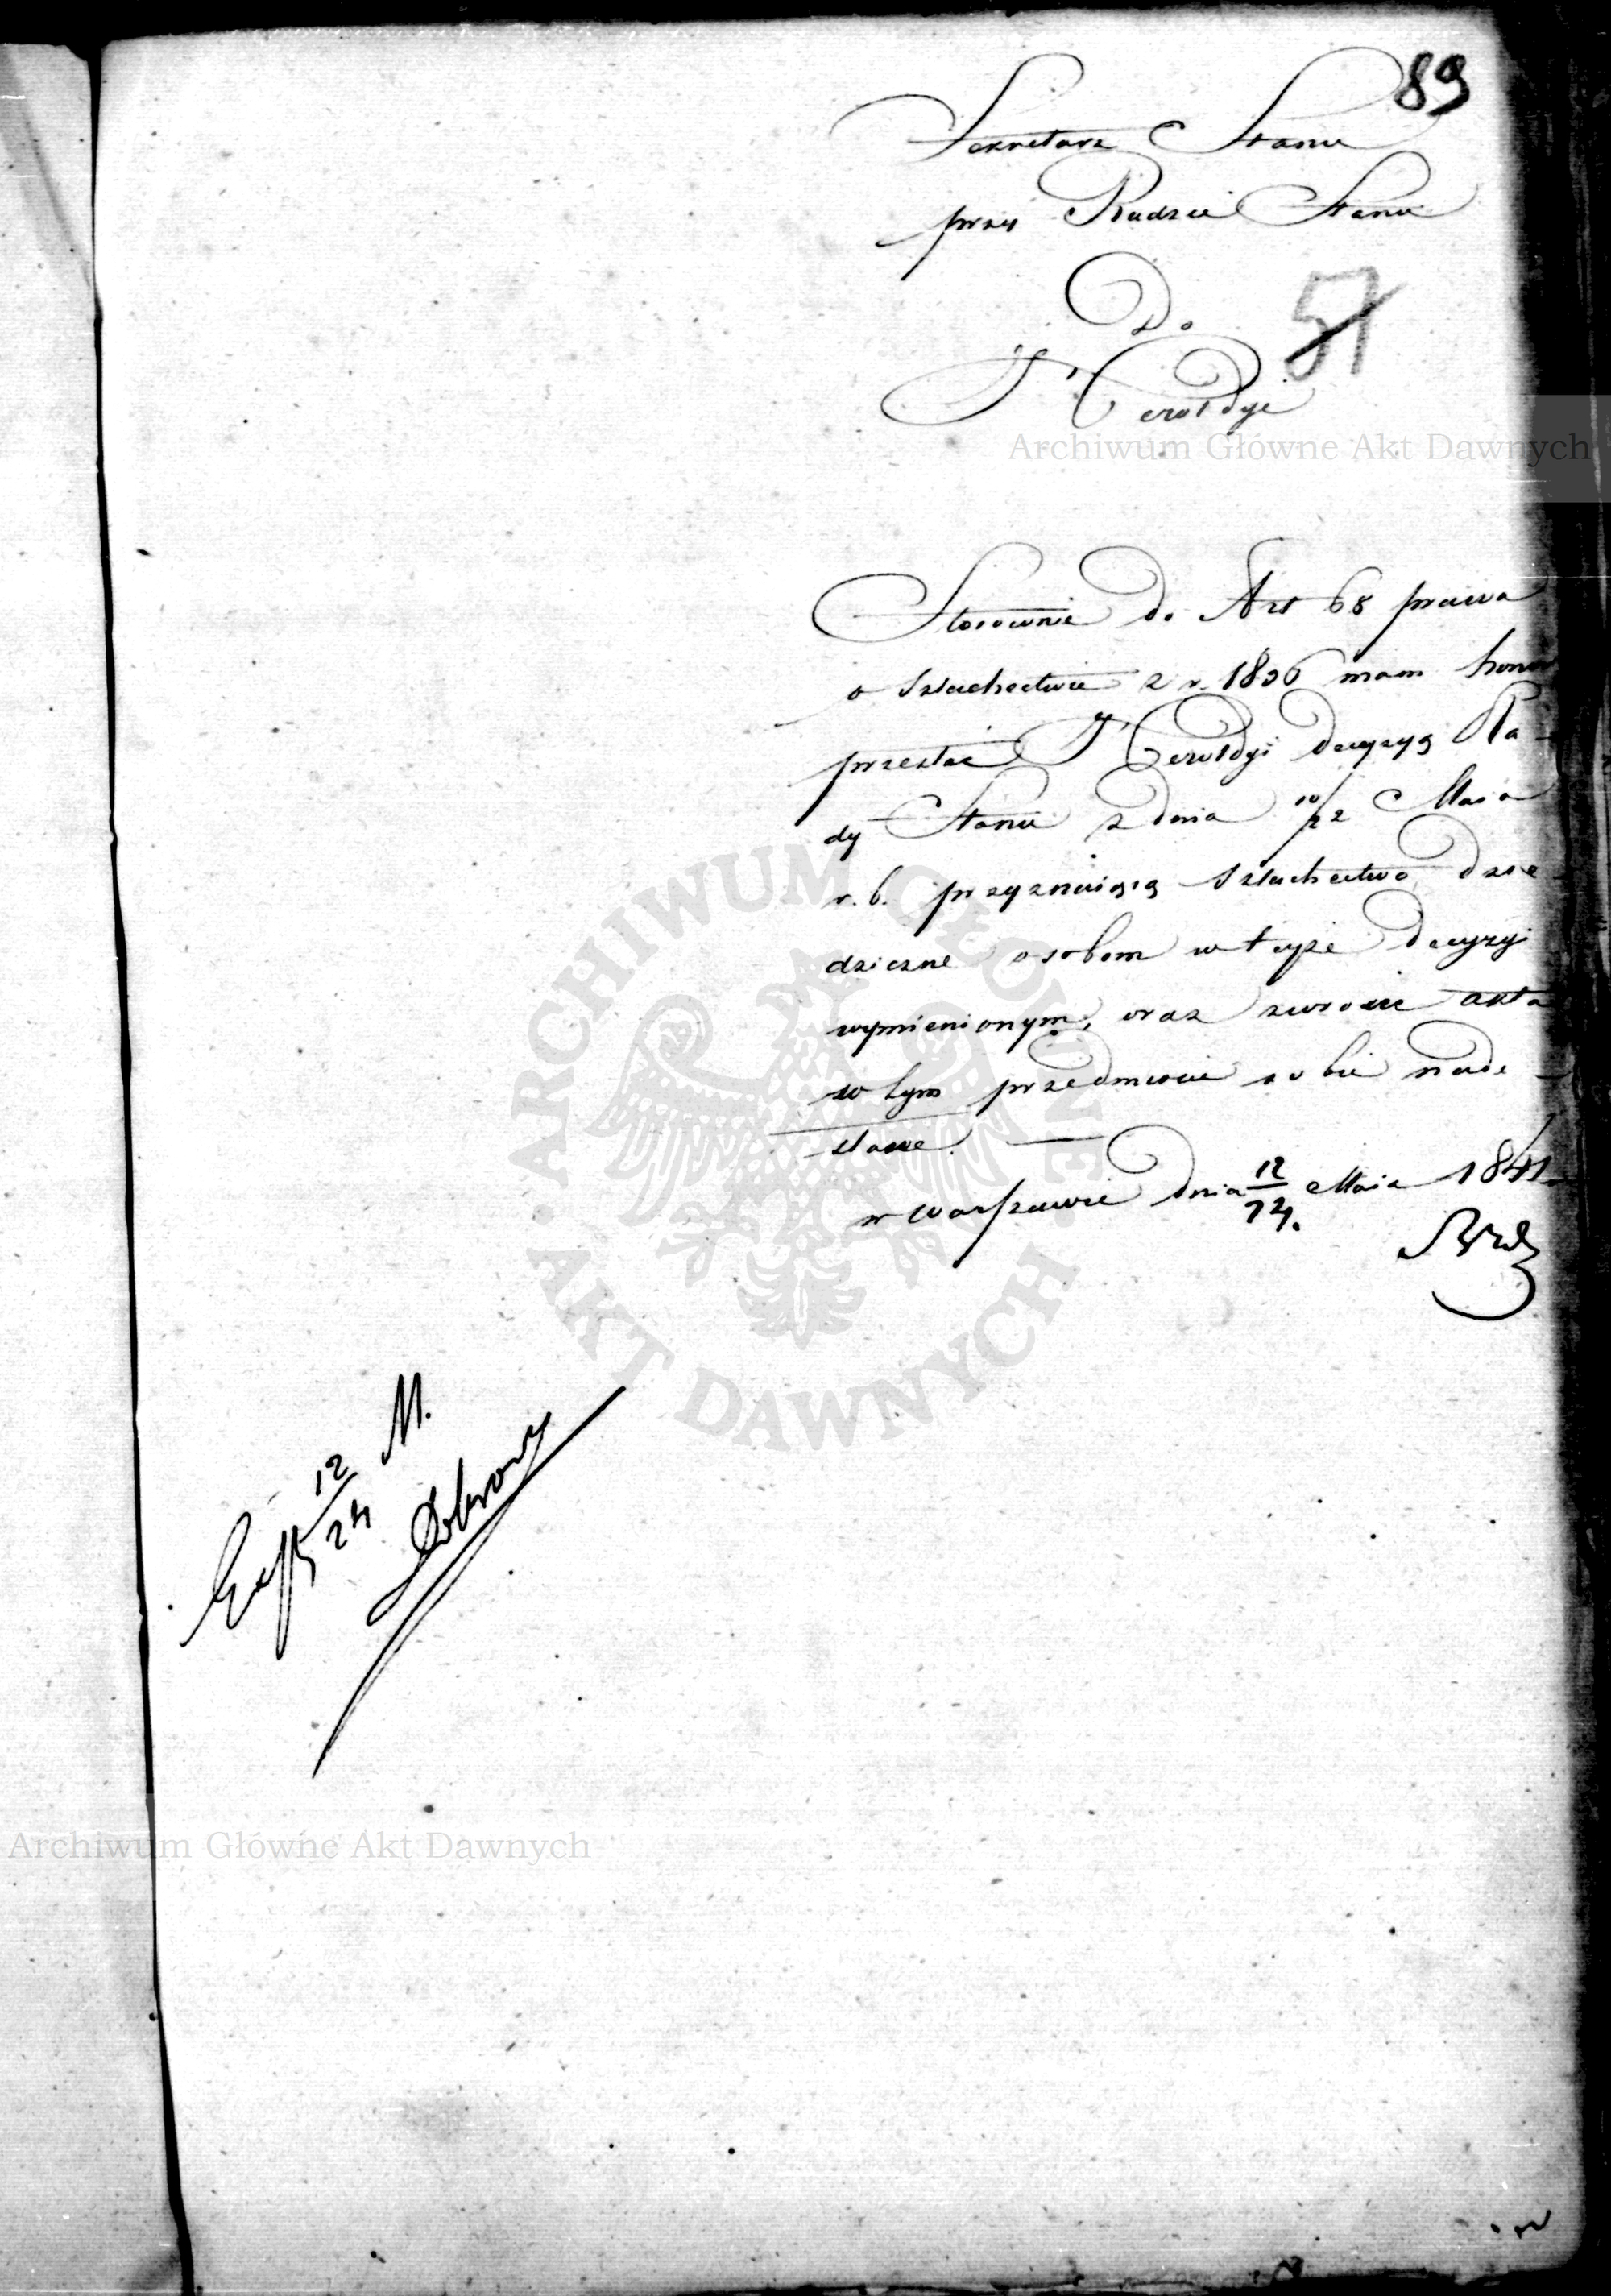 89
Sekretarz Stanu
przy Radzie Stanu
Do
51
J. Heroldyi
Archiwum Główne Akt Dawnych
Stosownie do Art 68 prawa
o szlachectwie z r. 1836 mam honor
przesłać J. Heroldyi decyzyą Ra-
dy Stanu z dnia 10/22 Maia
r. b. przyznaiącą szlachectwo dzie-
dziczne osobom w teyże decyzyi
wymienionym, oraz zwrócić akta
w tym przedmiocie sobie nade-
słane. —
w Warszawie dnia 12/24. Maia 1841
ARCHIWUM GŁÓWNE
AKT DAWNYCH
12/24 M.
Archiwum Główne Akt Dawnych